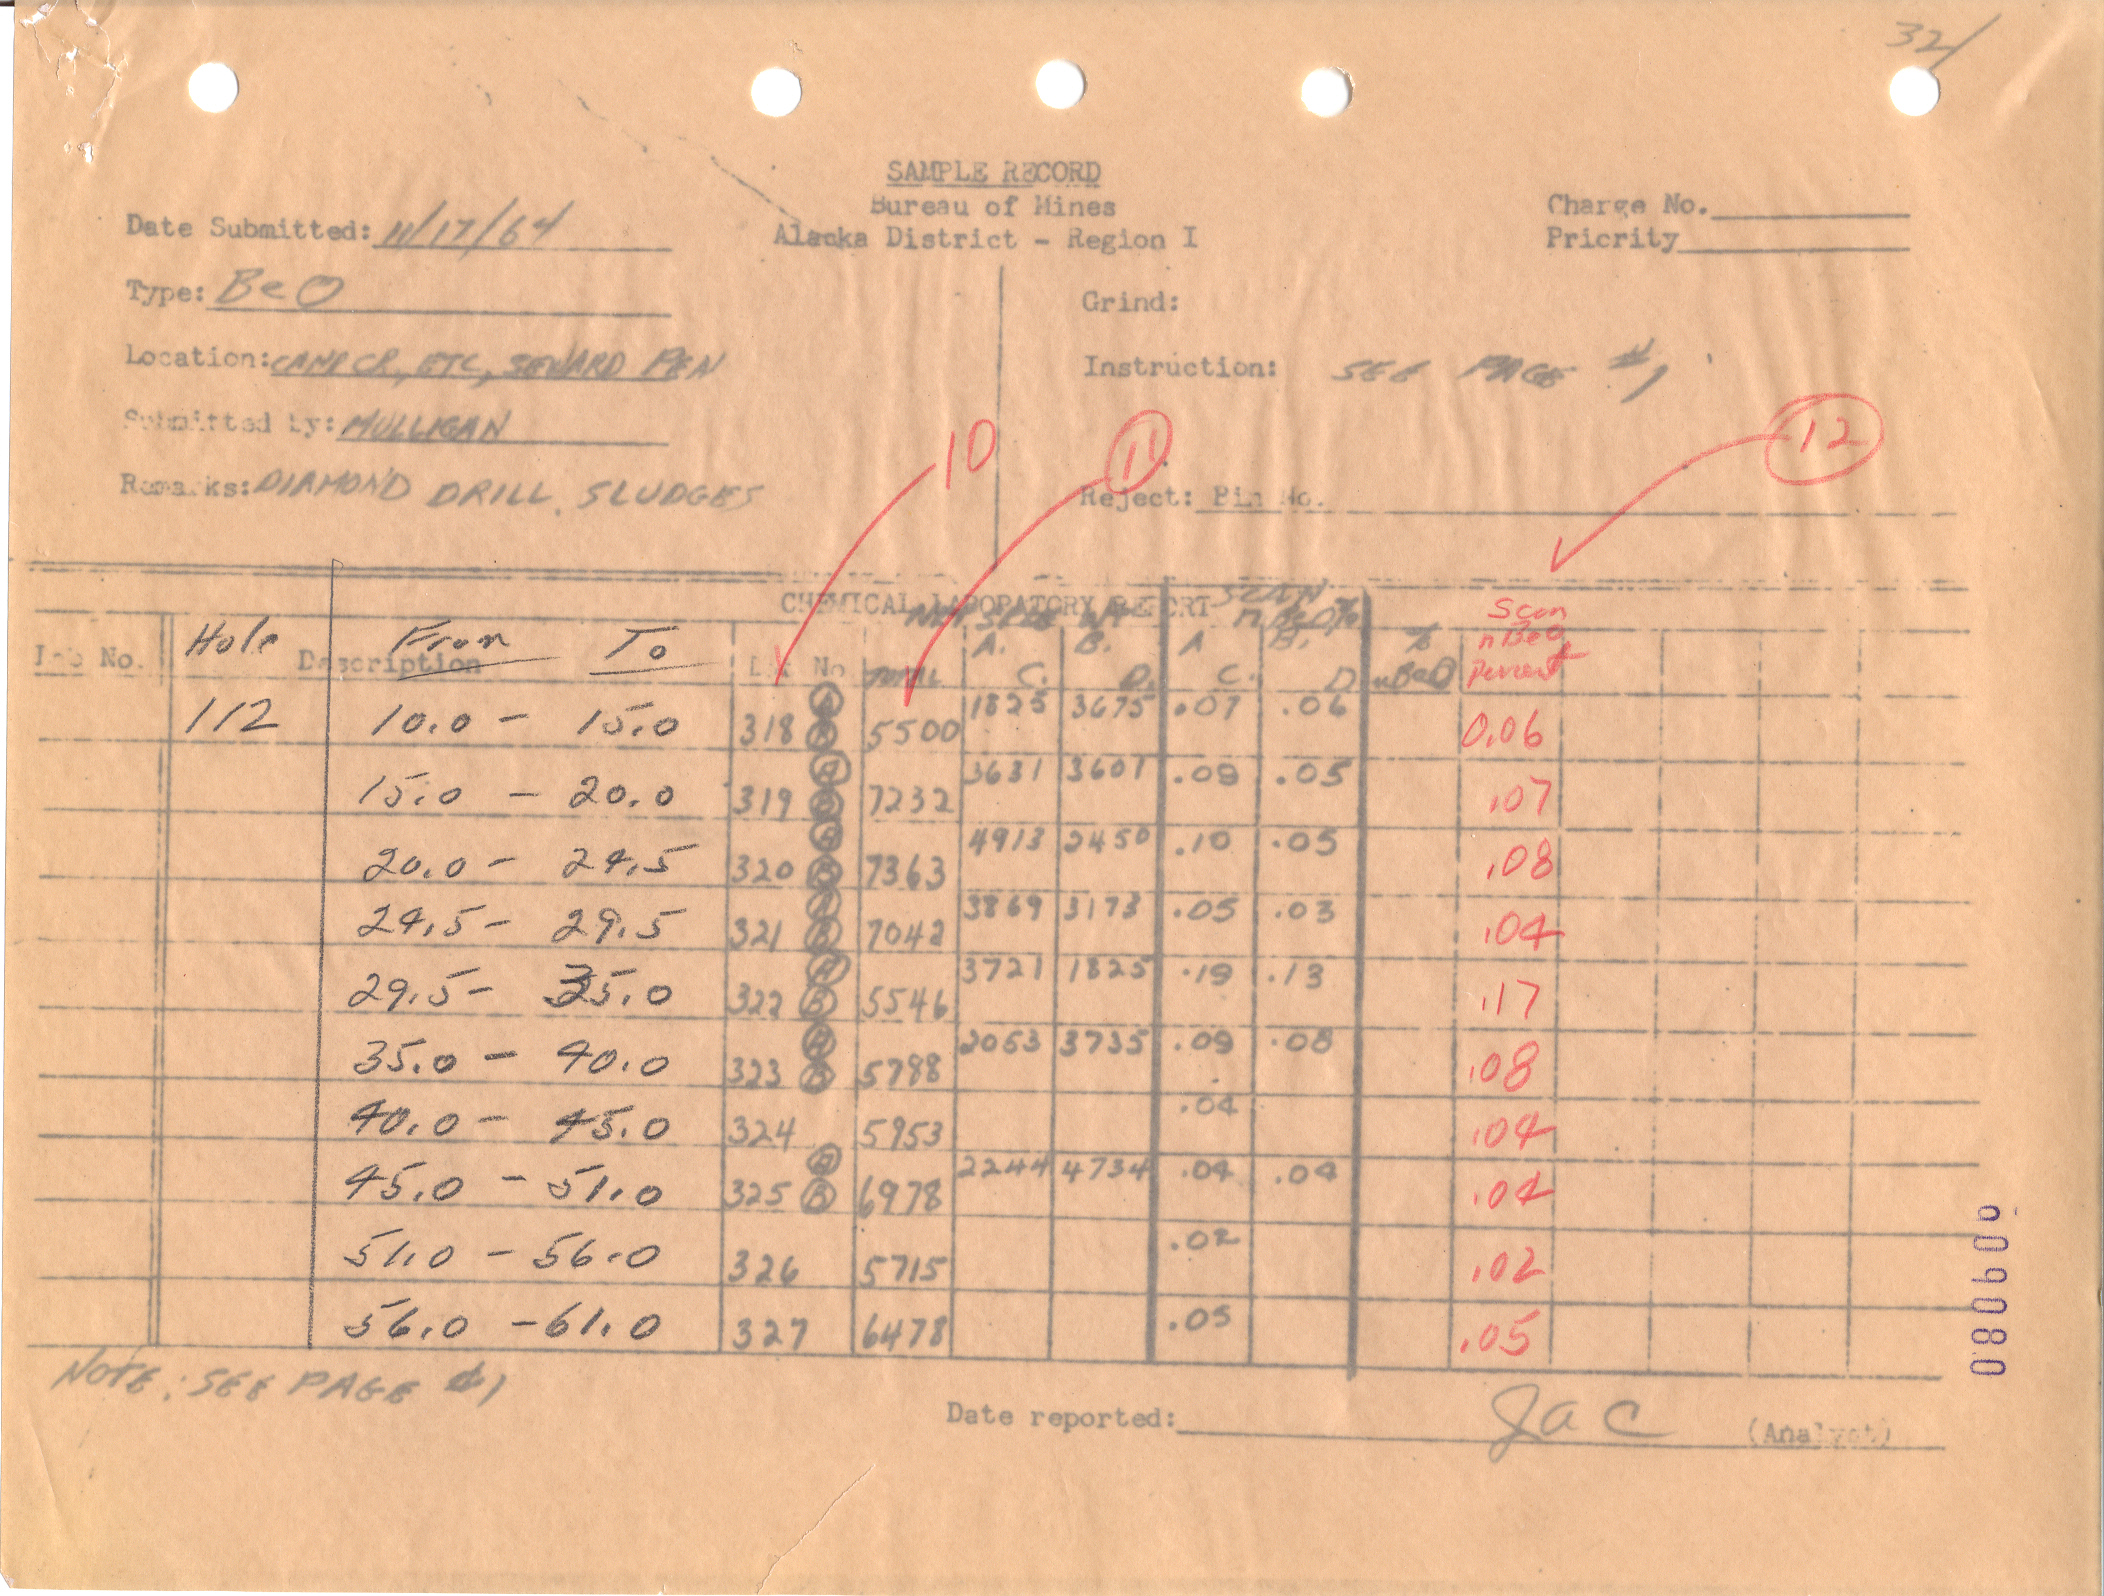 32/
SAMPLE RECORD
Bureau of Mines
Alaska District - Region I
Charge No.
Priority
Date Submitted: 11/17/64
Type: BeO
Location: CAMP CR, ETC, SEWARD PEN
Submitted by: MULLIGAN
Remarks: DIAMOND DRILL SLUDGES
Grind:
Instruction: SEE PAGE #1
Reject: Bin No.
10 11 12
CHEMICAL LABORATORY REPORT
NET SPLE WT SCAN nBeO%
Scan nBeO, Percent
Job No. Hole Description From To Lab No TOTAL A. B. C. D. A B. C. D % nBeO
112 10.0 - 15.0 318 A B 5500 1825 3675 .07 .06 0.06
15.0 - 20.0 319 A B 7232 3631 3601 .09 .05 .07
20.0 - 24.5 320 A B 7363 4913 2450 .10 .05 .08
24.5 - 29.5 321 A B 7042 3869 3173 .05 .03 .04
29.5 - 35.0 322 A B 5546 3721 1825 .19 .13 .17
35.0 - 40.0 323 A B 5788 2053 3735 .09 .08 .08
40.0 - 45.0 324 5953 .04 .04
45.0 - 51.0 325 A B 6978 2244 4734 .04 .04 .04
51.0 - 56.0 326 5715 .02 .02
56.0 - 61.0 327 6478 .05 .05
NOTE: SEE PAGE #1
Date reported: Jac (Analyst)